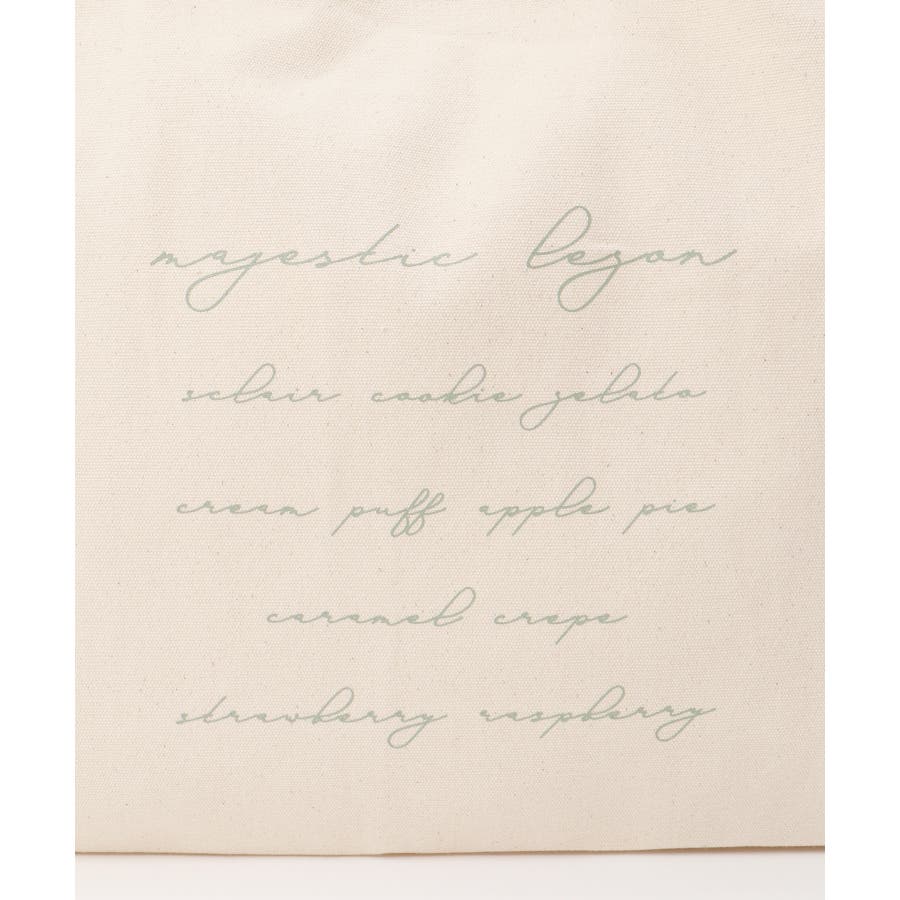 majestic legon
sclair cookie gelato
cream puff apple pie
caramel crepe
strawberry raspberry